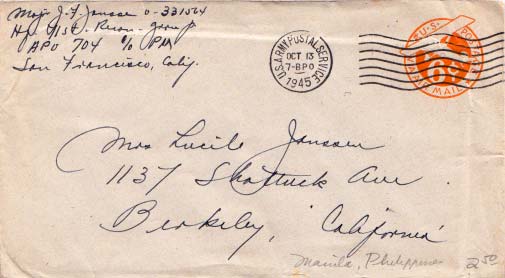 Maj. J. F. Janssen O-331564
Hq. 91st. Recon. group
APO 704 c/o PM
San Francisco, Calif.
U.S. ARMY POSTAL SERVICE
OCT 13
7-8PO
1945
U.S. POSTAGE
6¢
AIR MAIL
Mrs Lucile Janssen
1137 Shattuck Ave.
Berkeley, California
Manila, Philippines
2.50